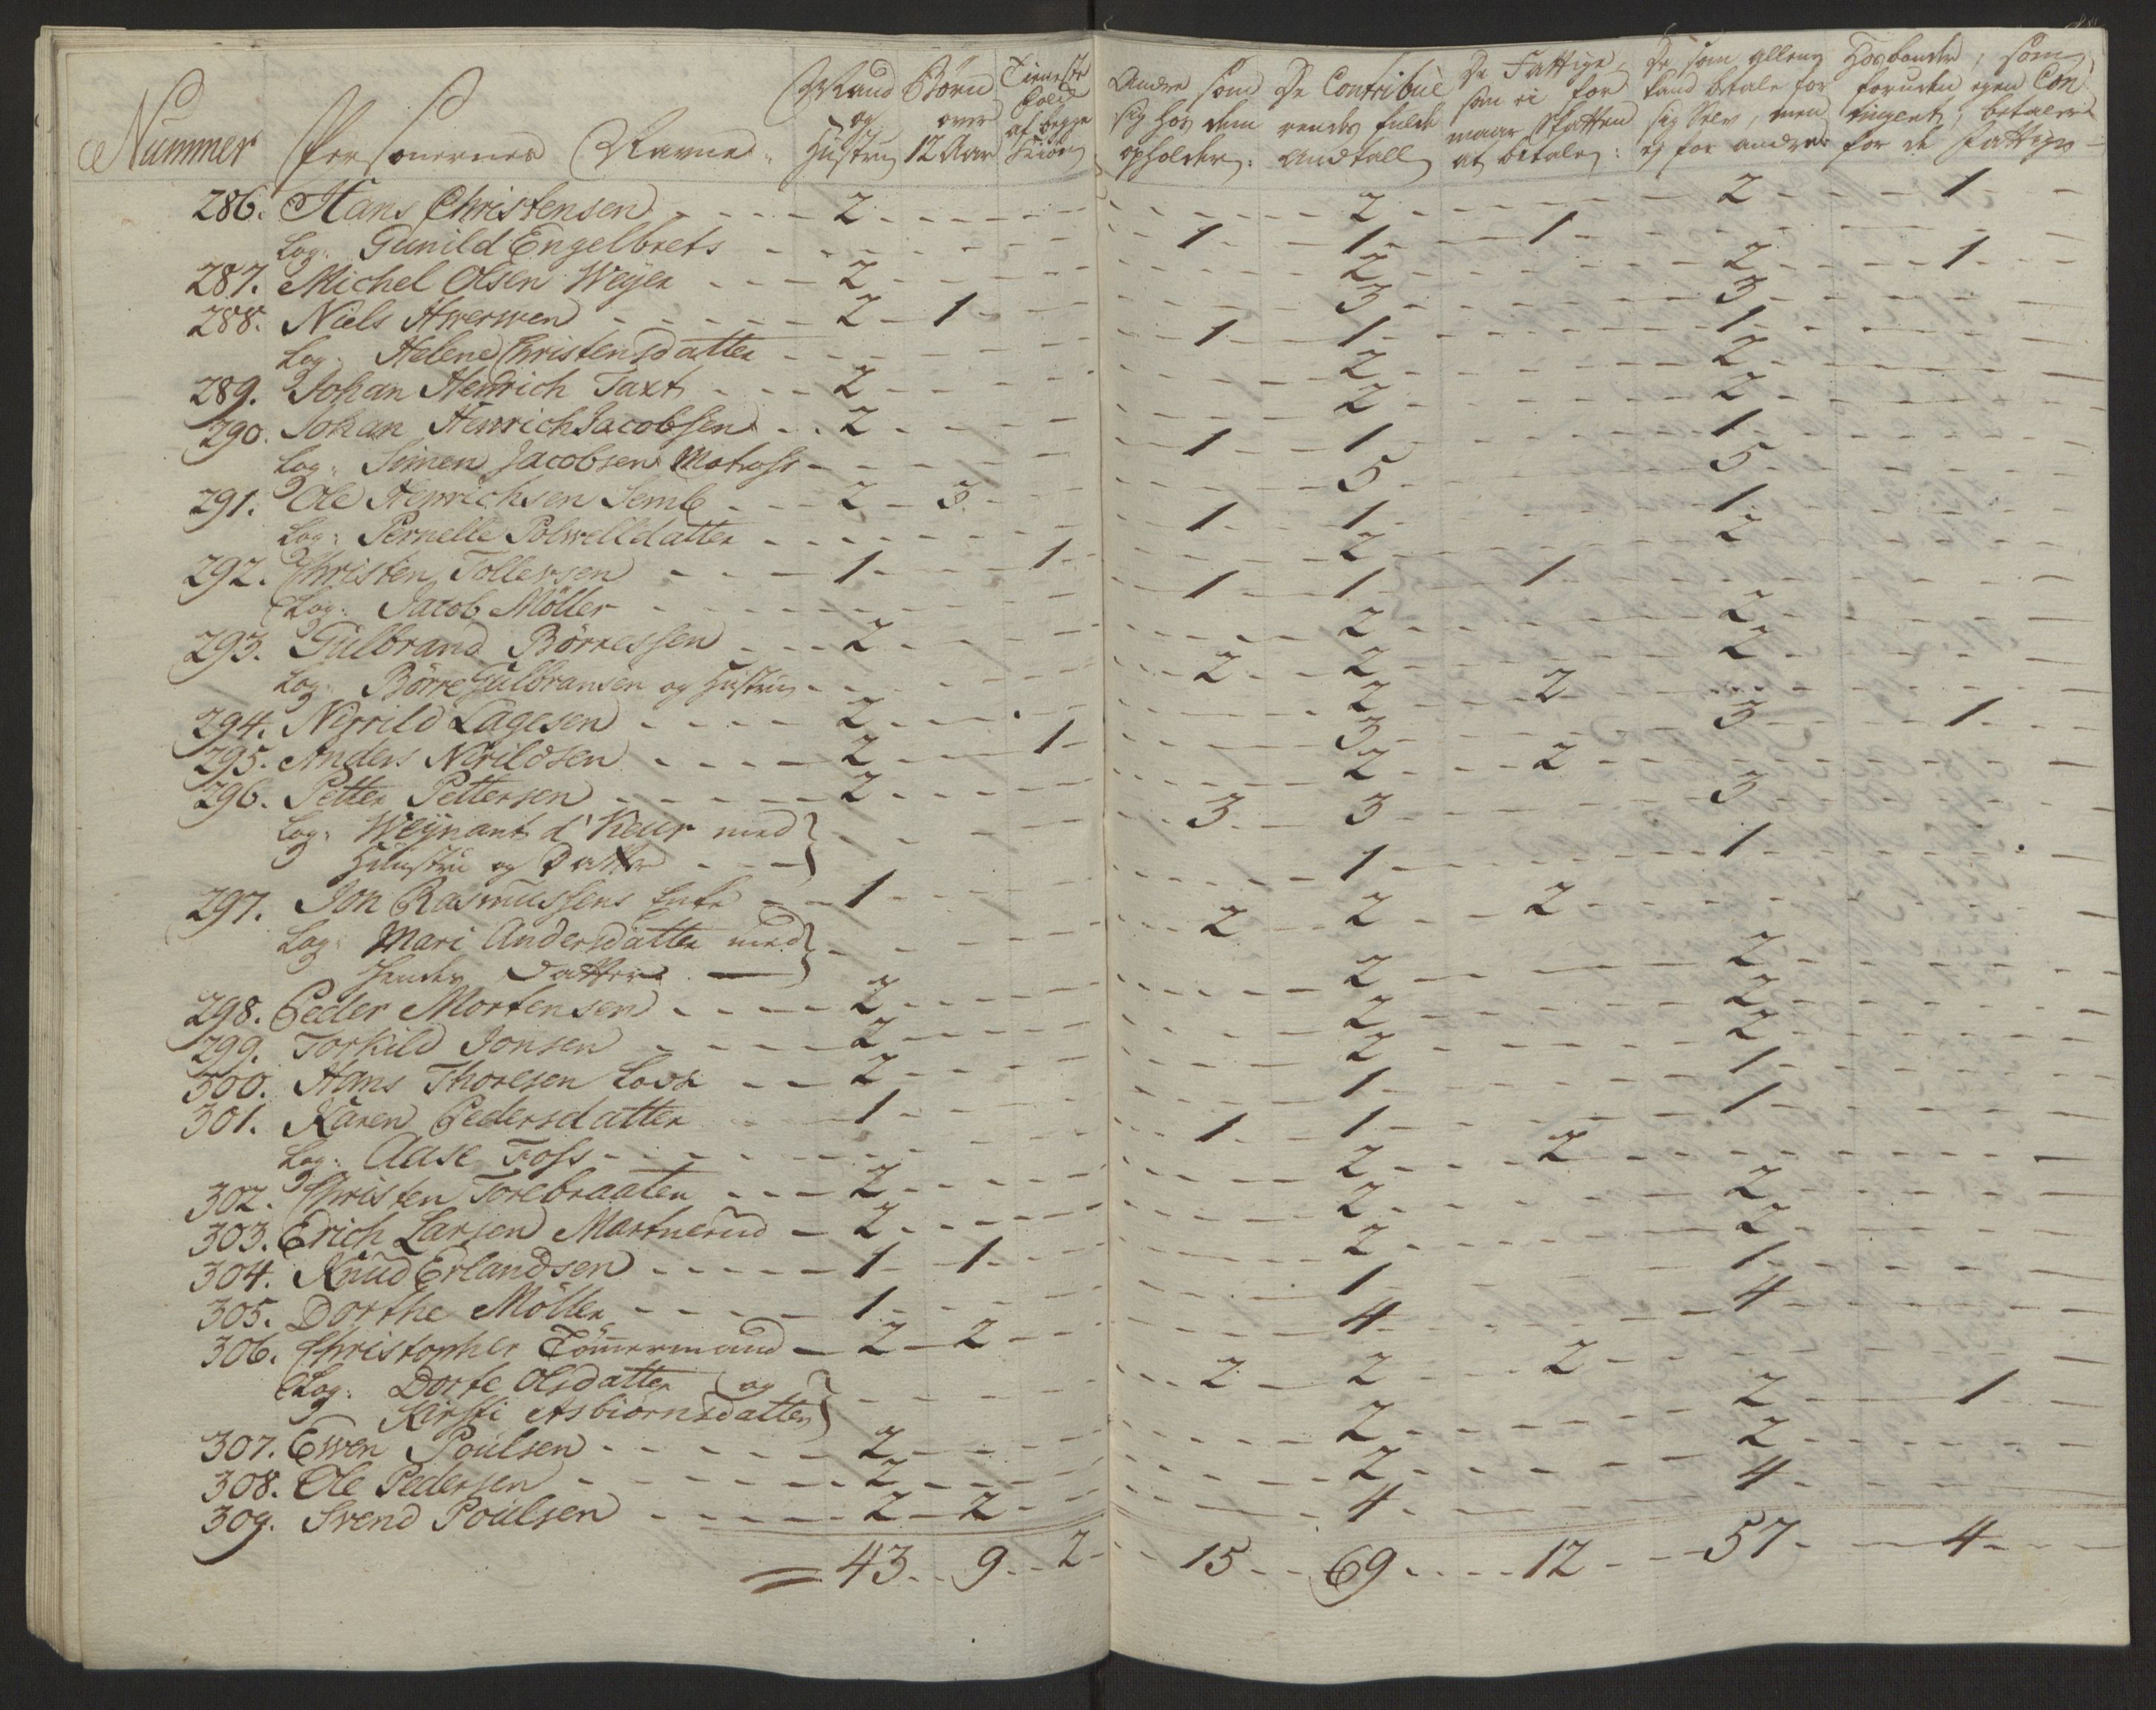 Nummer Personernes Navne. Mand og Hustru Børn over 12 Aar Tieneste Folk af begge Kiøn Andre som sig hos dem opholder. De Contribuerendes fulde Andtall De Fattige, som ei for maar Skatten at betale: De som alleene kand betale for sig Selv, men ej for andre Hosbonder, som foruden egen Contingent, betaler for de Fattige
286. Hans Christensen 2 2 2 1
Log: Gunild Engelbrets 1 1 1
287. Michel Olsen Weyer 2 2 2 1
288. Niels Awerwen 2 1 3 3
Log: Helene Christensdatter 1 1 1
289. Johan Henrich Taxt 2 2 2
290. Johan Henrich Jacobsen 2 2 2
Log: Simen Jacobsen Matross 1 1 1
291. Ole Henrichsen Semb 2 3 5 5
Log: Pernelle Polwelldatter 1 1 1
292. Christen Tollefsen 1 1 2 2
Log: Jacob Möller 1 1 1
293. Gulbrand Börressen 2 2 2
Log: Börre Gulbransen og Hustrue 2 2 2
294. Nerrild Lagesen 2 2 2
295. Anders Nerildsen 2 1 3 3 1
296. Petter Pettersen 2 2 2
Log: Weynant d'Keur med
Huustrue og Datter 3 3 3
297. Jon Rasmussens Enke 1 1 1
Log: Mari Andersdatter med
Hendes Datter 2 2 2
298. Peder Mortensen 2 2 2
299. Torkild Jonsen 2 2 2
300. Hans Thoresen Lods 2 2 2
301. Karen Pedersdatter 1 1 1
Log: Aase Foss 1 1 1
302. Christen Torebraaten 2 2 2
303. Erich Larsen Martnerud 2 2 2
304. Knud Erlandsen 1 1 2 2
305. Dorthe Möller 1 1 1
306. Christopher Tömmermand 2 2 4 4
Log: Dorte Olsdatter og
Kirsti Asbiörnsdatter 2 2 2
307. Ewen Poulsen 2 2 2 1
308. Ole Pedersen 2 2 2
309. Svend Poulsen 2 2 4 4
43 9 2 15 69 12 57 4